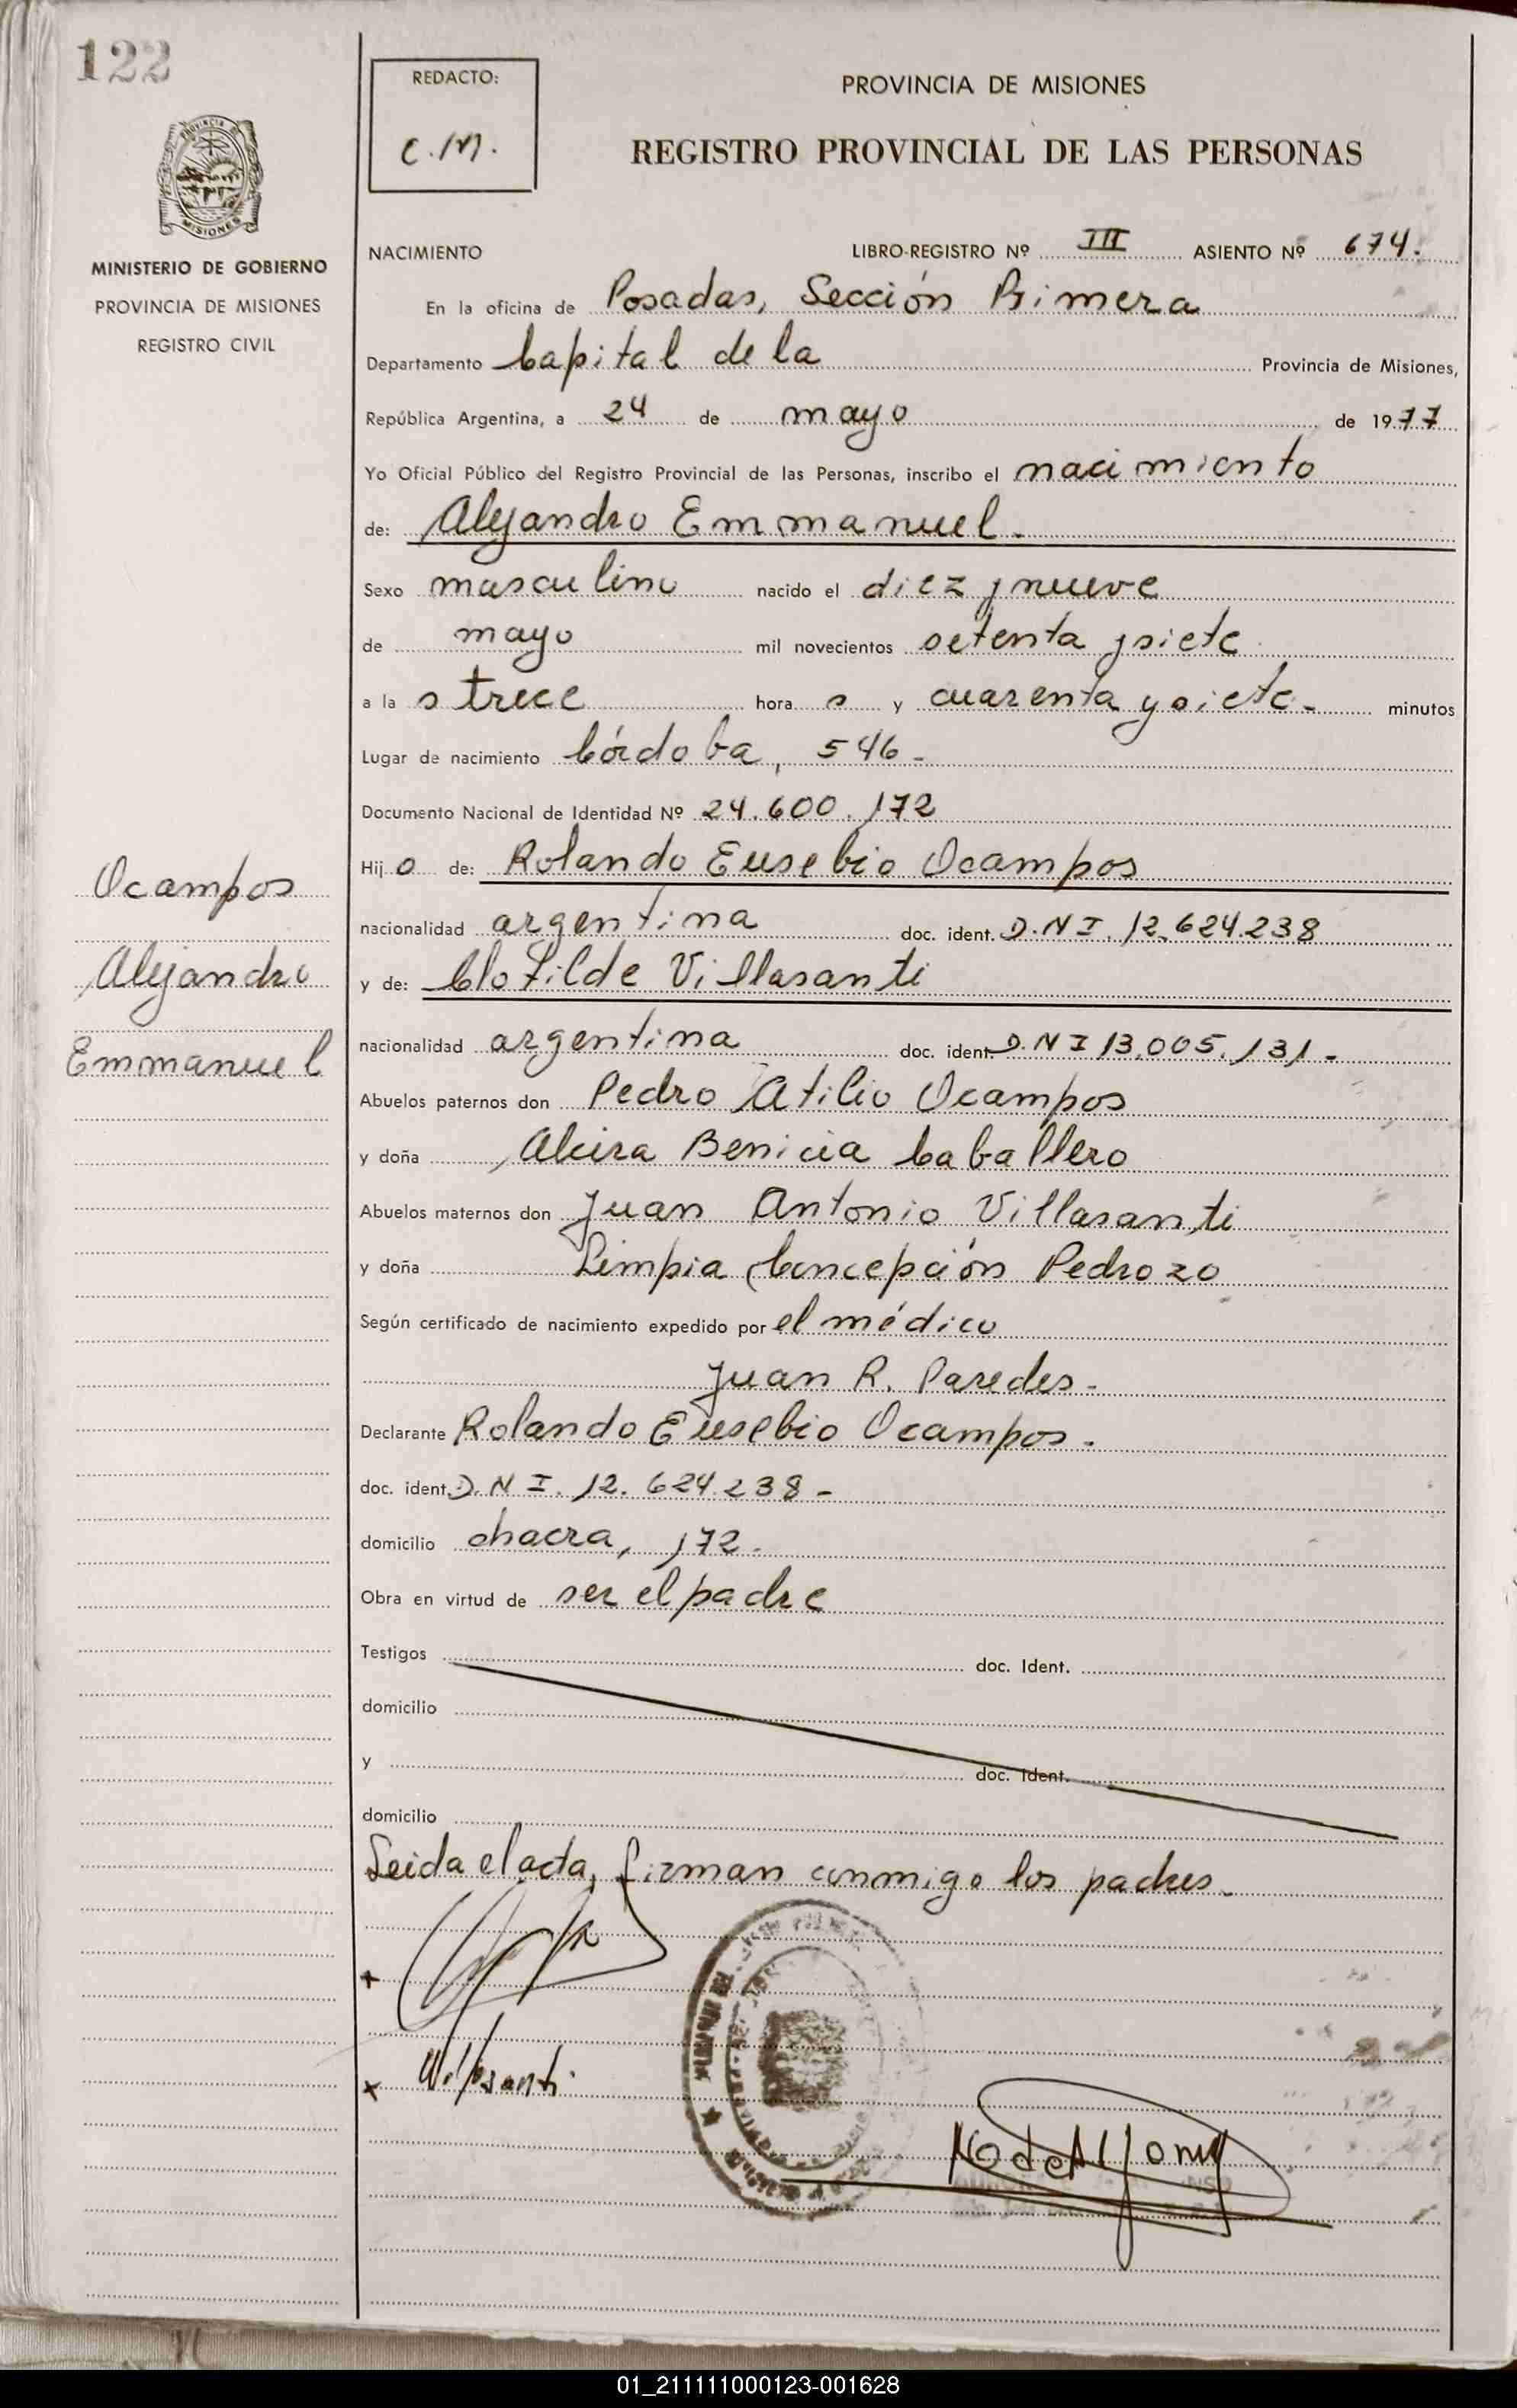 122
REDACTO:
C.M.
PROVINCIA DE MISIONES
REGISTRO PROVINCIAL DE LAS PERSONAS
MISIONES
MINISTERIO DE GOBIERNO
PROVINCIA DE MISIONES
REGISTRO CIVIL
NACIMIENTO LIBRO-REGISTRO Nº III ASIENTO Nº 674.
En la oficina de Posadas, Sección Primera
Departamento Capital de la Provincia de Misiones,
República Argentina, a 24 de mayo de 1977
Yo Oficial Público del Registro Provincial de las Personas, inscribo el nacimiento
de: Alejandro Emmanuel.
Sexo masculino nacido el diez y nueve
de mayo mil novecientos setenta y siete
a la s trece hora s y cuarenta y siete - minutos
Lugar de nacimiento Córdoba, 546 -
Documento Nacional de Identidad Nº 24.600.172
Hij o de: Rolando Eusebio Ocampos
nacionalidad argentina doc. ident. D.N I. 12.624.238
y de: Clotilde Villasanti
nacionalidad argentina doc. ident. D.N I 13.005.131 -
Abuelos paternos don Pedro Atilio Ocampos
y doña Alcira Benicia Caballero
Abuelos maternos don Juan Antonio Villasanti
y doña Limpia Concepción Pedrozo
Según certificado de nacimiento expedido por el médico
Juan R. Paredes -
Declarante Rolando Eusebio Ocampos -
doc. ident. D. N I. 12. 624.238 -
domicilio chacra, 172.
Obra en virtud de ser el padre
Testigos doc. Ident.
domicilio
y doc. Ident.
domicilio
Leida el acta, firman conmigo los padres.
Villasanti
Ocampos
Alejandro
Emmanuel
01_211111000123-001628